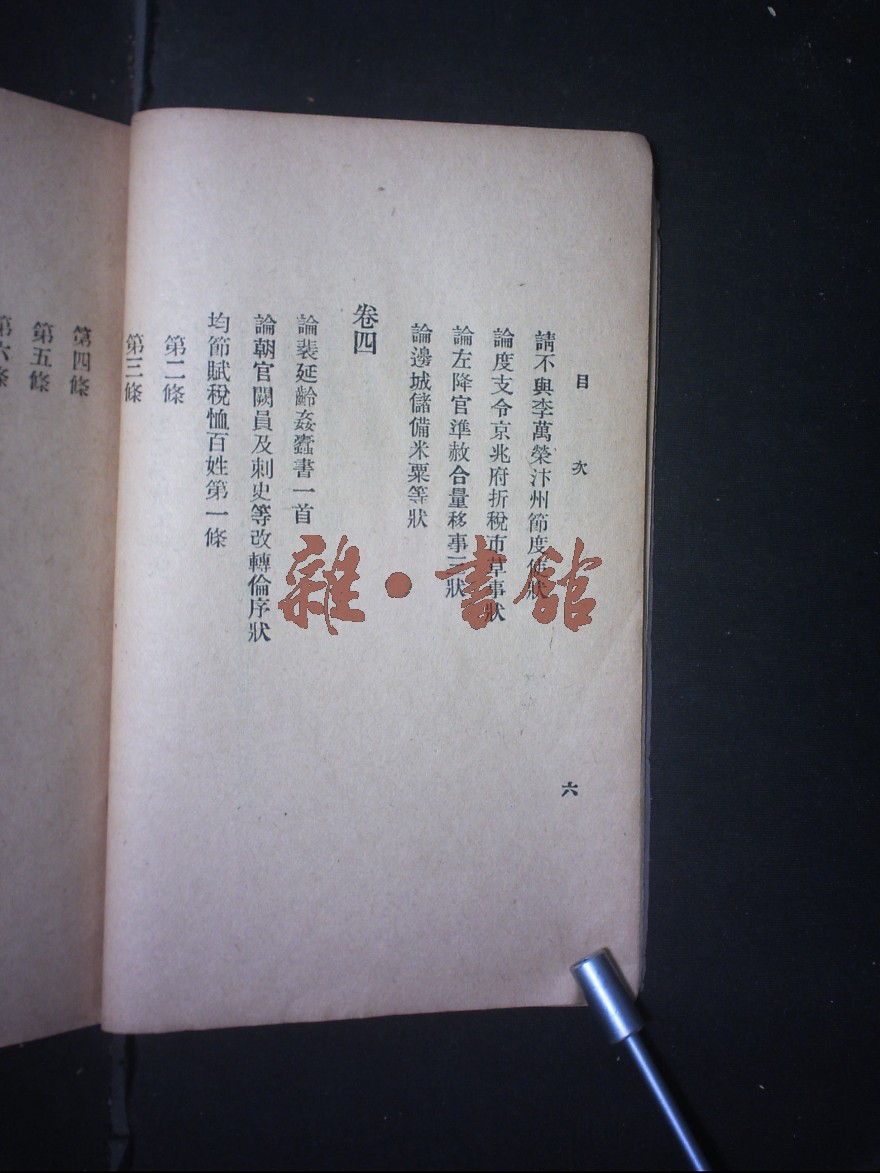 目次
請不與李萬榮汴州節度使狀
論度支令京兆府折稅市草事狀
論左降官準赦合量移事三狀
論邊城儲備米粟等狀
卷四
論裴延齡姦蠹書一首
論朝官闕員及刺史等改轉倫序狀
均節賦稅恤百姓第一條
第二條
第三條
第四條
第五條
第六條
六
雜·書館